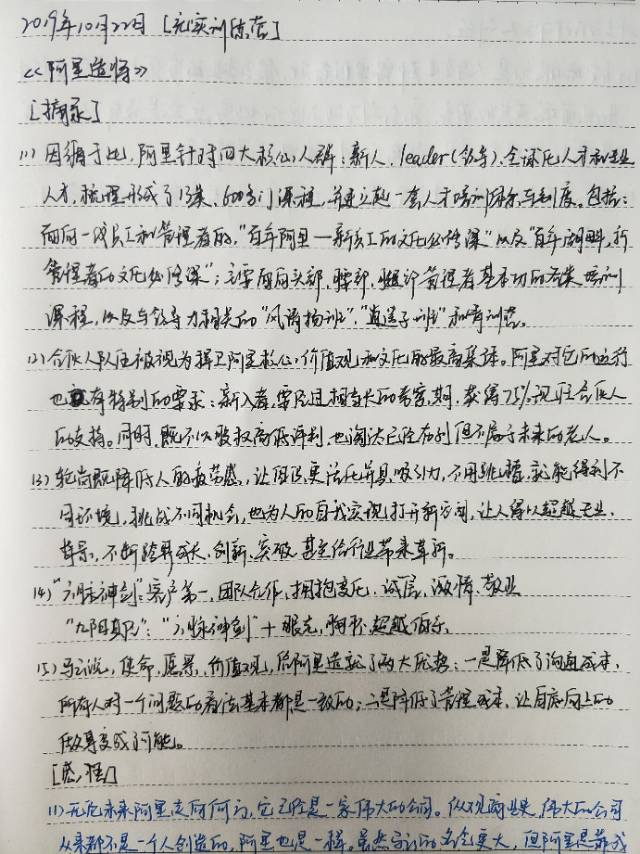 2019年10月22日 [充实训练营]
《阿里造将》
[摘录]
(1) 因循于此,阿里针对四大核心人群:新人、leader(领导)、全球化人才和专业
人才,梳理形成了13类、600多门课程,并建立起一套人才培训体系与制度。包括:
面向一线员工和管理者的,"百年阿里—新员工的文化必修课"以及"百年湖畔,新
管理者的文化必修课";主要面向头部、腰部、腿部管理者基本功的各类培训
课程,以及与领导力相关的"风清扬班"、"逍遥子班"和青训营。
(2) 合伙人队伍被视为捍卫阿里核心价值观和文化的最高集体。阿里对它的运行
也有特别的要求:新入者,需经过相当长的考察期,获得75%现任合伙人
的支持。同时,既不以股权高低评判,也淘汰已经在列但不属于未来的老人。
(3) 轮岗既降低人的疲劳感,让团队更活化并具吸引力,不用跳槽,就能得到不
同环境,挑战不同机会,也为人的自我实现打开新空间,让人得以超越专业、
背景,不断跨界成长、创新、突破,甚至给行业带来革新。
(4) "六脉神剑":客户第一,团队合作,拥抱变化,诚信,激情,敬业
"九阳真经":"六脉神剑"+眼光,胸怀,超越伯乐。
(5) 马云说,使命、愿景、价值观,给阿里造就了两大优势:一是降低了沟通成本,
所有人对一个问题的看法基本都是一致的;二是降低了管理成本,让自底向上的
做事变成了可能。
[感悟]
(1) 无论未来阿里走向何方,它已经是一家伟大的公司。纵观商业史,伟大的公司
从来都不是一个人创造的,阿里也是一样。虽然马云的名气更大,但阿里是靠我